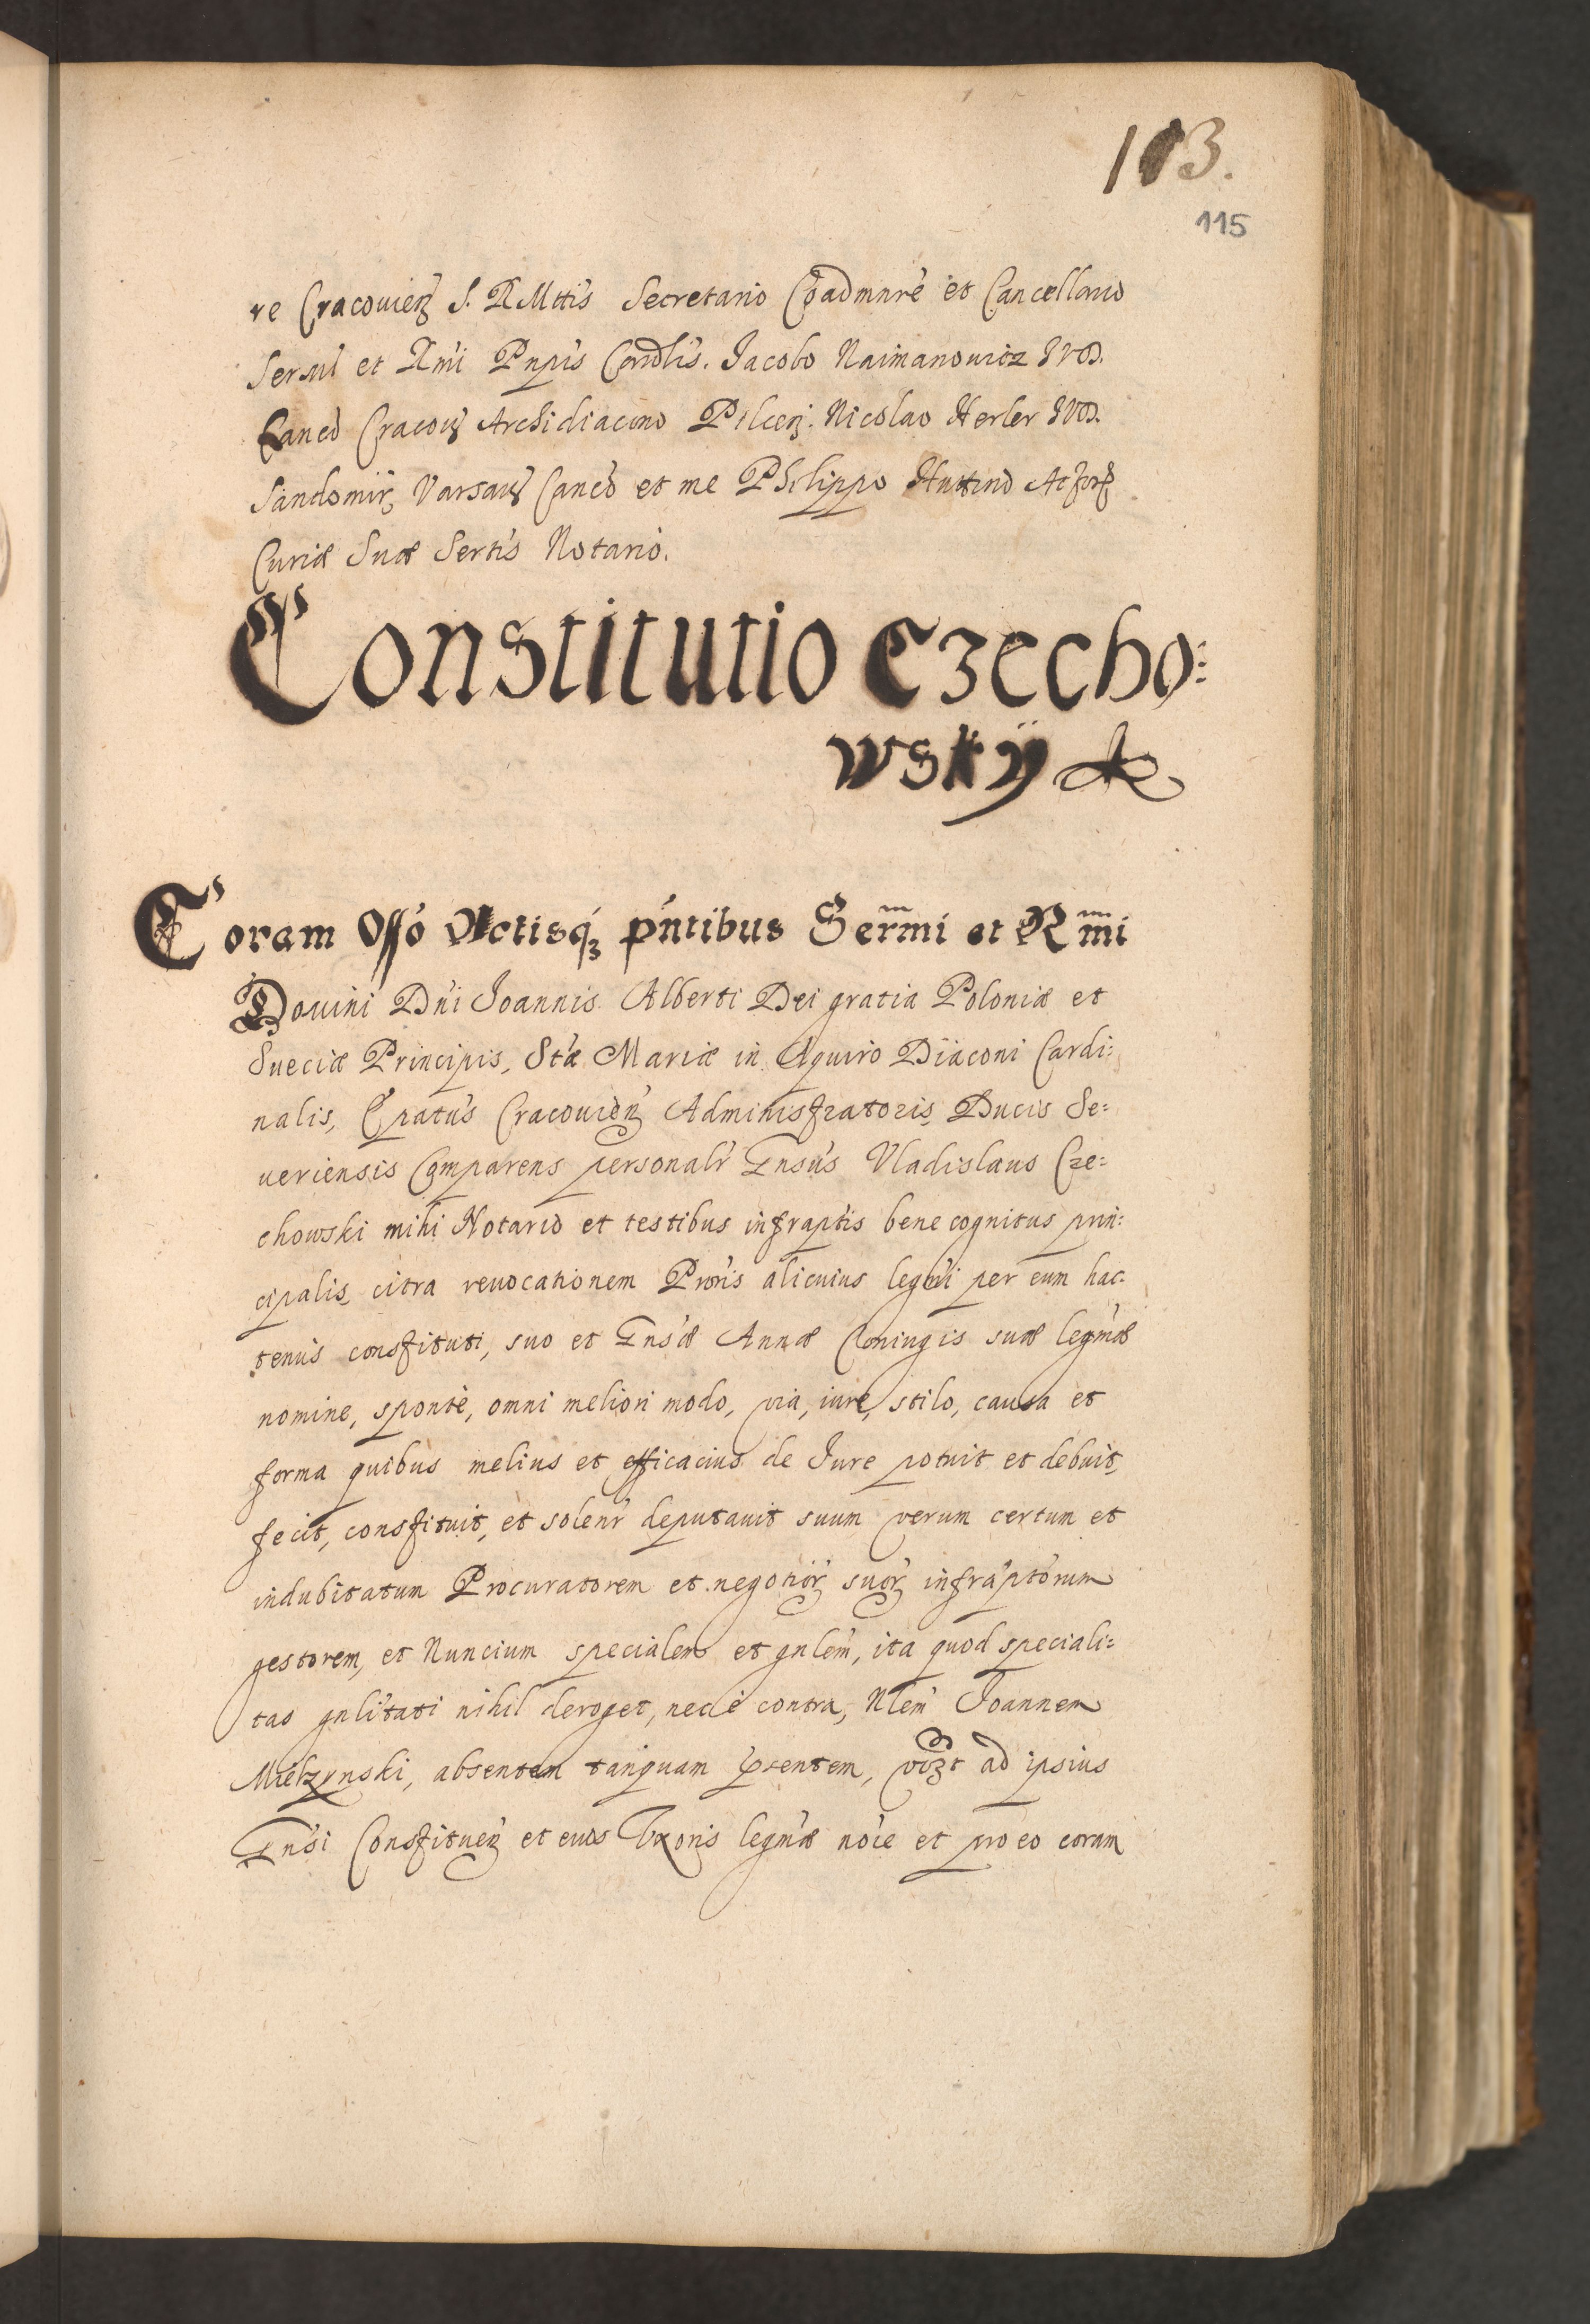 113.
115
re Cracouien̄ S. R Mttis Secretario Coadmnre et Cancellario
Sermi et Rmi Pnpis Cardlis. Jacobo Naimanowicz IVD.
Canco Cracou Archidiacono Pilcen. Nicolao Herler IVD.
Sandomir, Varsau Canco et me Philippo Huttino
Curiæ Suæ Sertis Notario.
Constitutio Czecho:
wskÿ
Coram Offo Actisq₃ pn̄tibus Serm̄i et Rm̄i
Domini Dn̄i Joannis Alberti Dei gratia Poloniæ et
Sueciæ Principis, Stæ Mariæ in Aquiro Diaconi Cardi:
nalis, Epatus Cracouien̄ Administratoris, Ducis Se:
ueriensis Comparens personalr Gnsus Vladislaus Cze:
chowski mihi Notario et testibus infraptis bene cognitus prin:
cipalis, citra reuocationem Prōris alicuius legmi per eum hac:
tenus constituti, suo et Gnsæ Annæ Coniugis suæ legmæ
nomine, sponte, omni meliori modo, via, iure, stilo, causa et
forma quibus melius et efficacius de Jure potuit et debuit,
fecit, constituit, et solenr deputauit suum verum certum et
indubitatum Procuratorem et negotior suor infraptorum
gestorem, et Nuncium specialem et gnlem, ita quod speciali:
tas gnlitati nihil deroget, nec è contra, Nlem Joannem
Mielzynski, absentem tanquam pręsentem, vidzt ad ipsius
Gnsi Constituen̄ et eius Vxoris legmæ noīe et pro eo coram